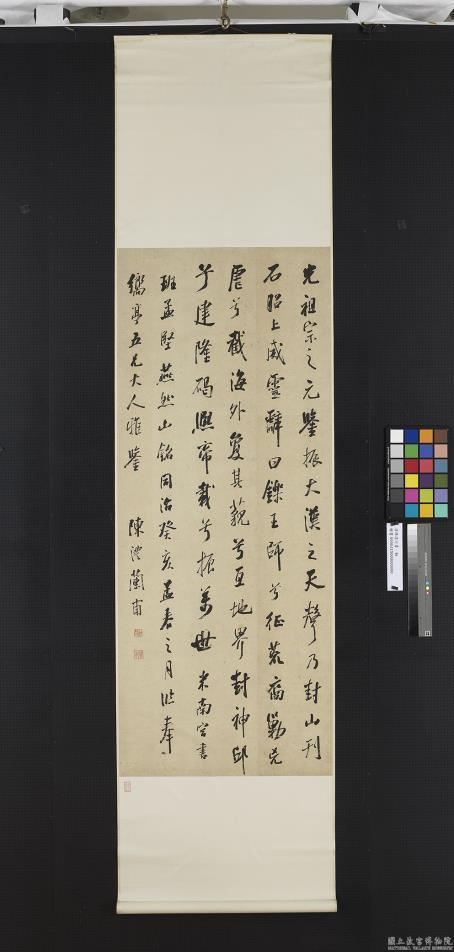 光祖宗之元鑒振大漢之天聲乃封山刊
石昭上威靈辭曰鑠王師兮征荒裔勦兇
虐兮截海外夐其藐兮亘地界封神邱
兮建隆碣熙帝載兮振萬世 米南宮書
班孟堅燕然山銘同治癸亥孟春之月作奉
五兄大人雅鑒 陳澧蘭甫
國立故宮博物院
NATIONAL PALACE MUSEUM